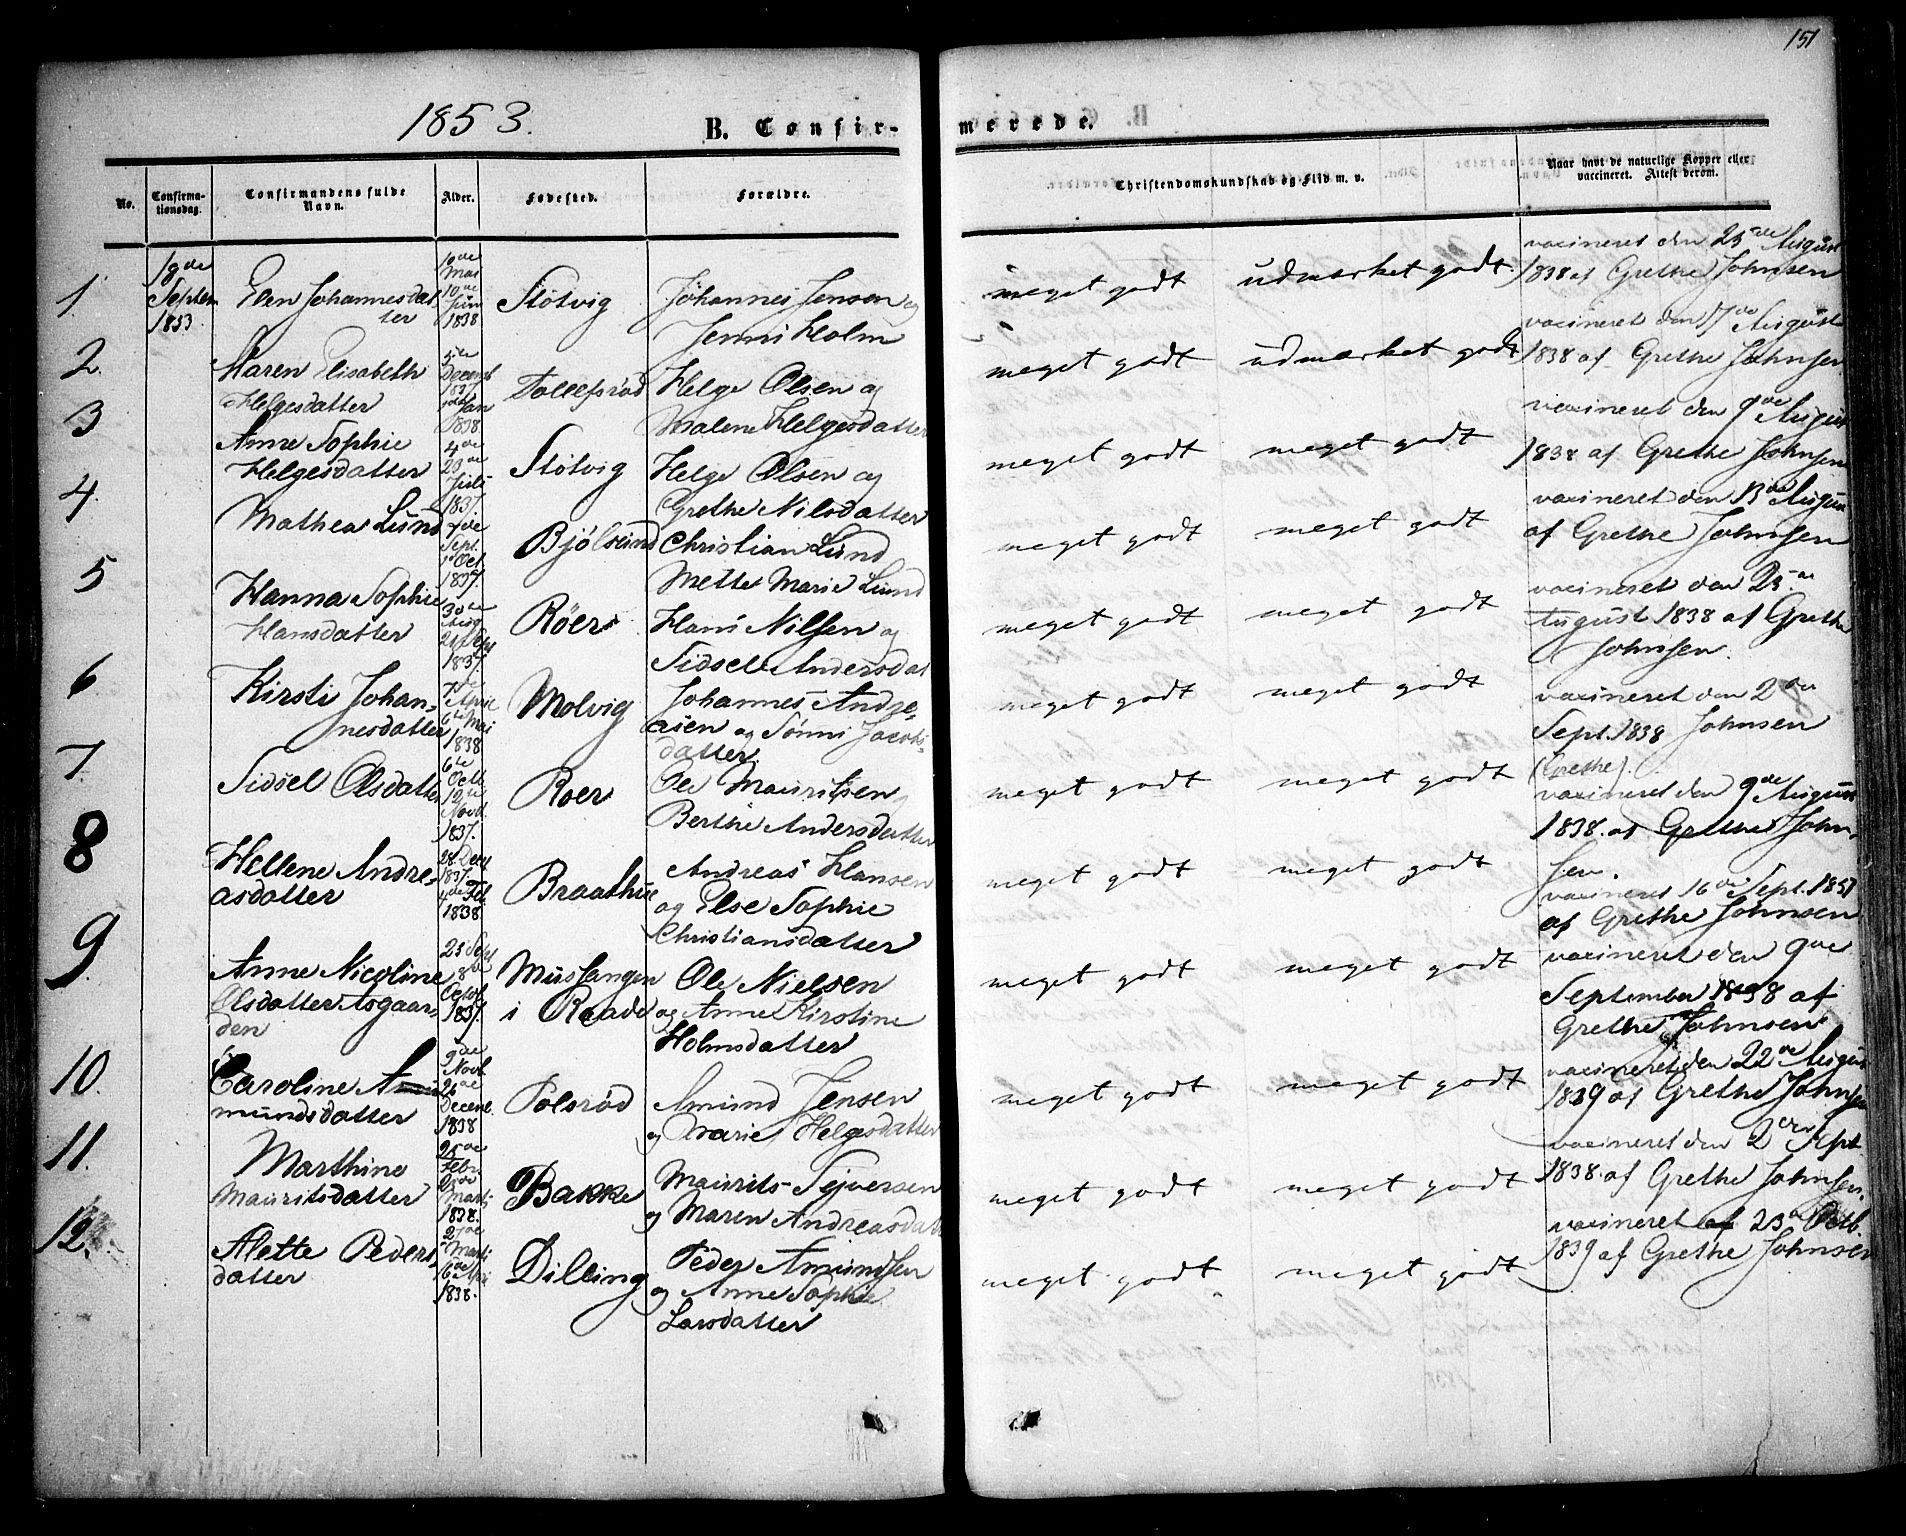 151
1853.
B. Confir-
merede.
No.
Confirma-
tionsdag.
Confirmandens fulde
Navn.
Alder.
Fødested.
Forældre.
Christendomskundskab og Flid m. v.
Naar havt de naturlige Kopper eller
vaccineret. Attest derom.
1.
18de
Septem
1853.
Elen Johannesdat
ter
10de
Juni
1838
Støtvig
Johannes Jensen og
Jenni Holm
meget godt
udmærket godt
vaccineret den 25de August
1838 af Grethe Johnsen
2.
Maren Elisabeth
Helgesdatter
5te
Decemb
1837
Jan
1838
Tollefsrød
Helge Olsen og
Malene Helgesdatter
meget godt
udmærket godt
vaccineret den 17de August
1838 af Grethe Johnsen
3
Anne Sophie
Helgesdatter
4de
23de
Juli
1837.
Støtvig
Helge Olsen og
Grethe Nilsdatter
meget godt
meget godt
vaccineret den 9de August
1838 af Grethe Johnsen
4.
Mathea Lund
Sept.
1ste Oct.
1837.
Bjølsund
Christian Lund
Mette Marie Lund
meget godt
meget godt
vaccineret den 13de August
af Grethe Johnsen
5
Hanna Sophie
Hansdatter
30te
Aug
1837.
Röer
Hans Nilsen og
Sidsel Andersdat
meget godt
meget godt
vaccineret den 25de
August 1838 af Grethe
Johnsen.
6
Kirsti Johan-
nesdatter
7de
April
6te Mai
1838
Molvig
Johannes Andre-
asen og Sønni Jacobs-
datter
meget godt
meget godt
vaccineret den 2den
Sept. 1838 Johnsen
(Grethe).
7
Sidsel Olsdatter
6te
Octb
12te
Novb.
1837.
Roer
Ole Mauritsen
Berthe Andersdatter
meget godt
meget godt
vaccineret den 9de August
1838. af Grethe John-
sen.
8
Hellene Andre-
asdatter
28. Dec
1837.
4de Feb.
1838.
Braathue
Andreas Hansen
og Else Sophie
Christiansdatter
meget godt
meget godt
vaccineret 16de Sept. 1851
af Grethe Johnsen
9.
Anne Nicoline
Olsdatter Asgaar-
den
23 Sept
8de
Octob.
1837.
Mussangen
i Raade
Ole Nielsen
og Anne Kirstine
Holmsdatter
meget godt
meget godt
vaccineret den 9de
September 1838 af
Grethe Johnsen
10.
Caroline A
mundsdatter
9de
Novb
26de
Decemb.
1838
Polsrød
Amund Jensen
og Marie Helgesdatter
meget godt
meget godt
vaccineret den 22de August
1839 af Grethe Johnsen
11.
Marthine
Mauritsdatter
25de
Febr.
Marts
1838.
Bakke
Maurits Sejversen
og Maren Andreasdatt
meget godt
meget godt
vaccineret den 2den Sept
1838. af Grethe Johnsen.
12.
Alette Peders
datter
27de
Marts
16de Apri
1838.
Dilling
Peder Amundsen
og Anne Sophie
Larsdatter
meget godt
meget godt
vaccineret af 23de Octb.
1839 af Grethe Johnsen